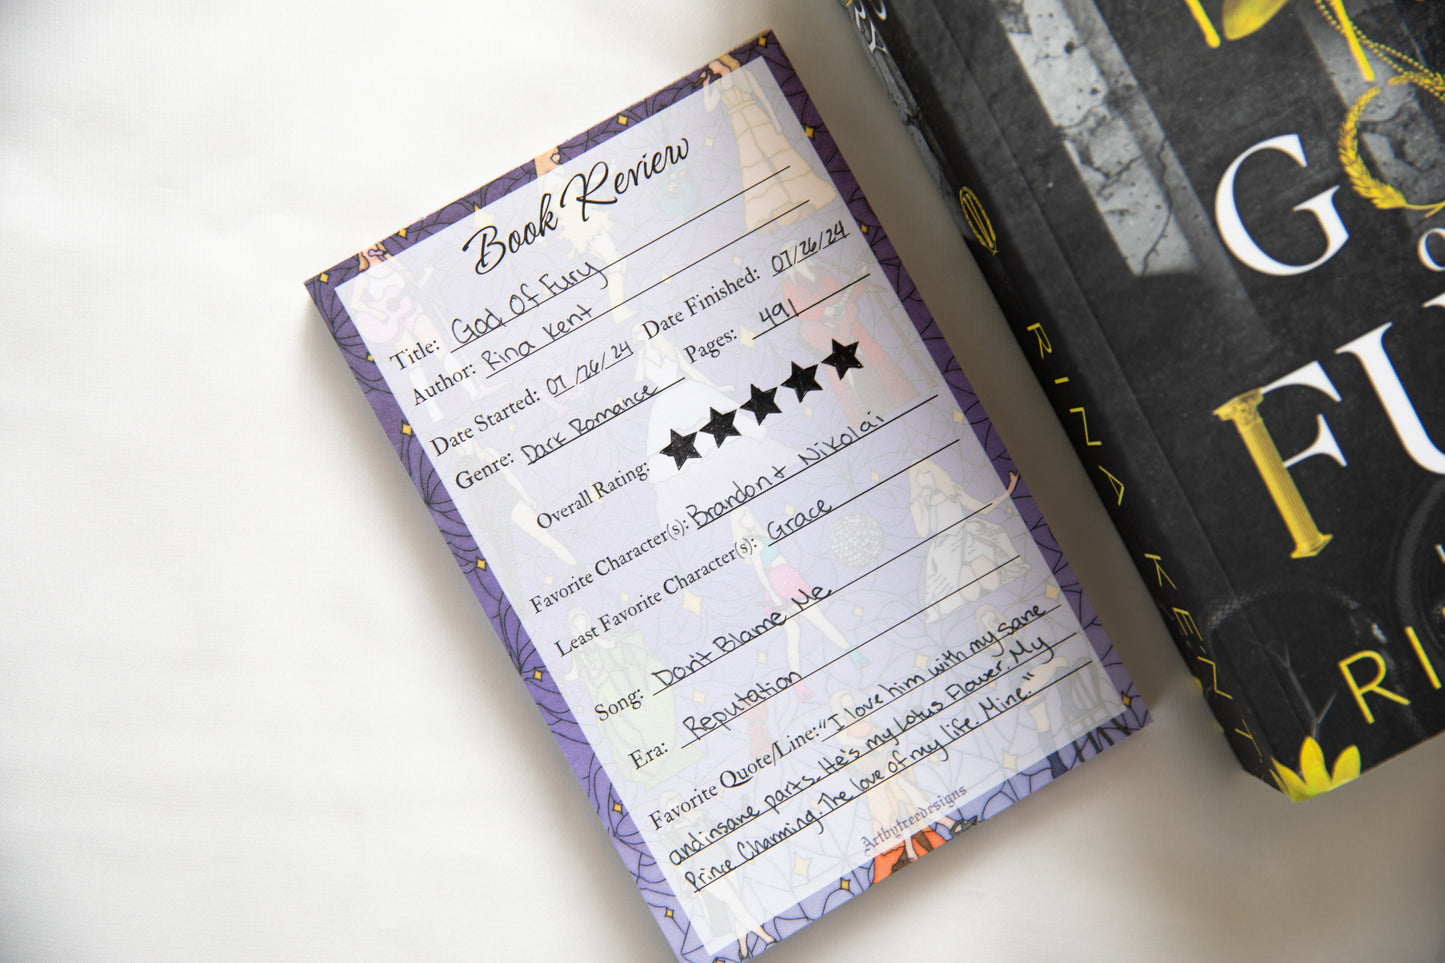 Book Review
Title: God Of Fury
Author: Rina Kent
Date Started: 07/26/24 Date Finished: 07/26/24
Genre: Dark Romance Pages: 491
Overall Rating: ★★★★★
Favorite Character(s): Brandon & Nikolai
Least Favorite Character(s): Grace
Song: Don't Blame Me
Era: Reputation
Favorite Quote/Line: "I love him with my sane
and insane parts. He's my Lotus Flower. My
Prince Charming. The love of my life. Mine."
Artbytreedesigns
RINA KENT
GOD
O
FU
RI